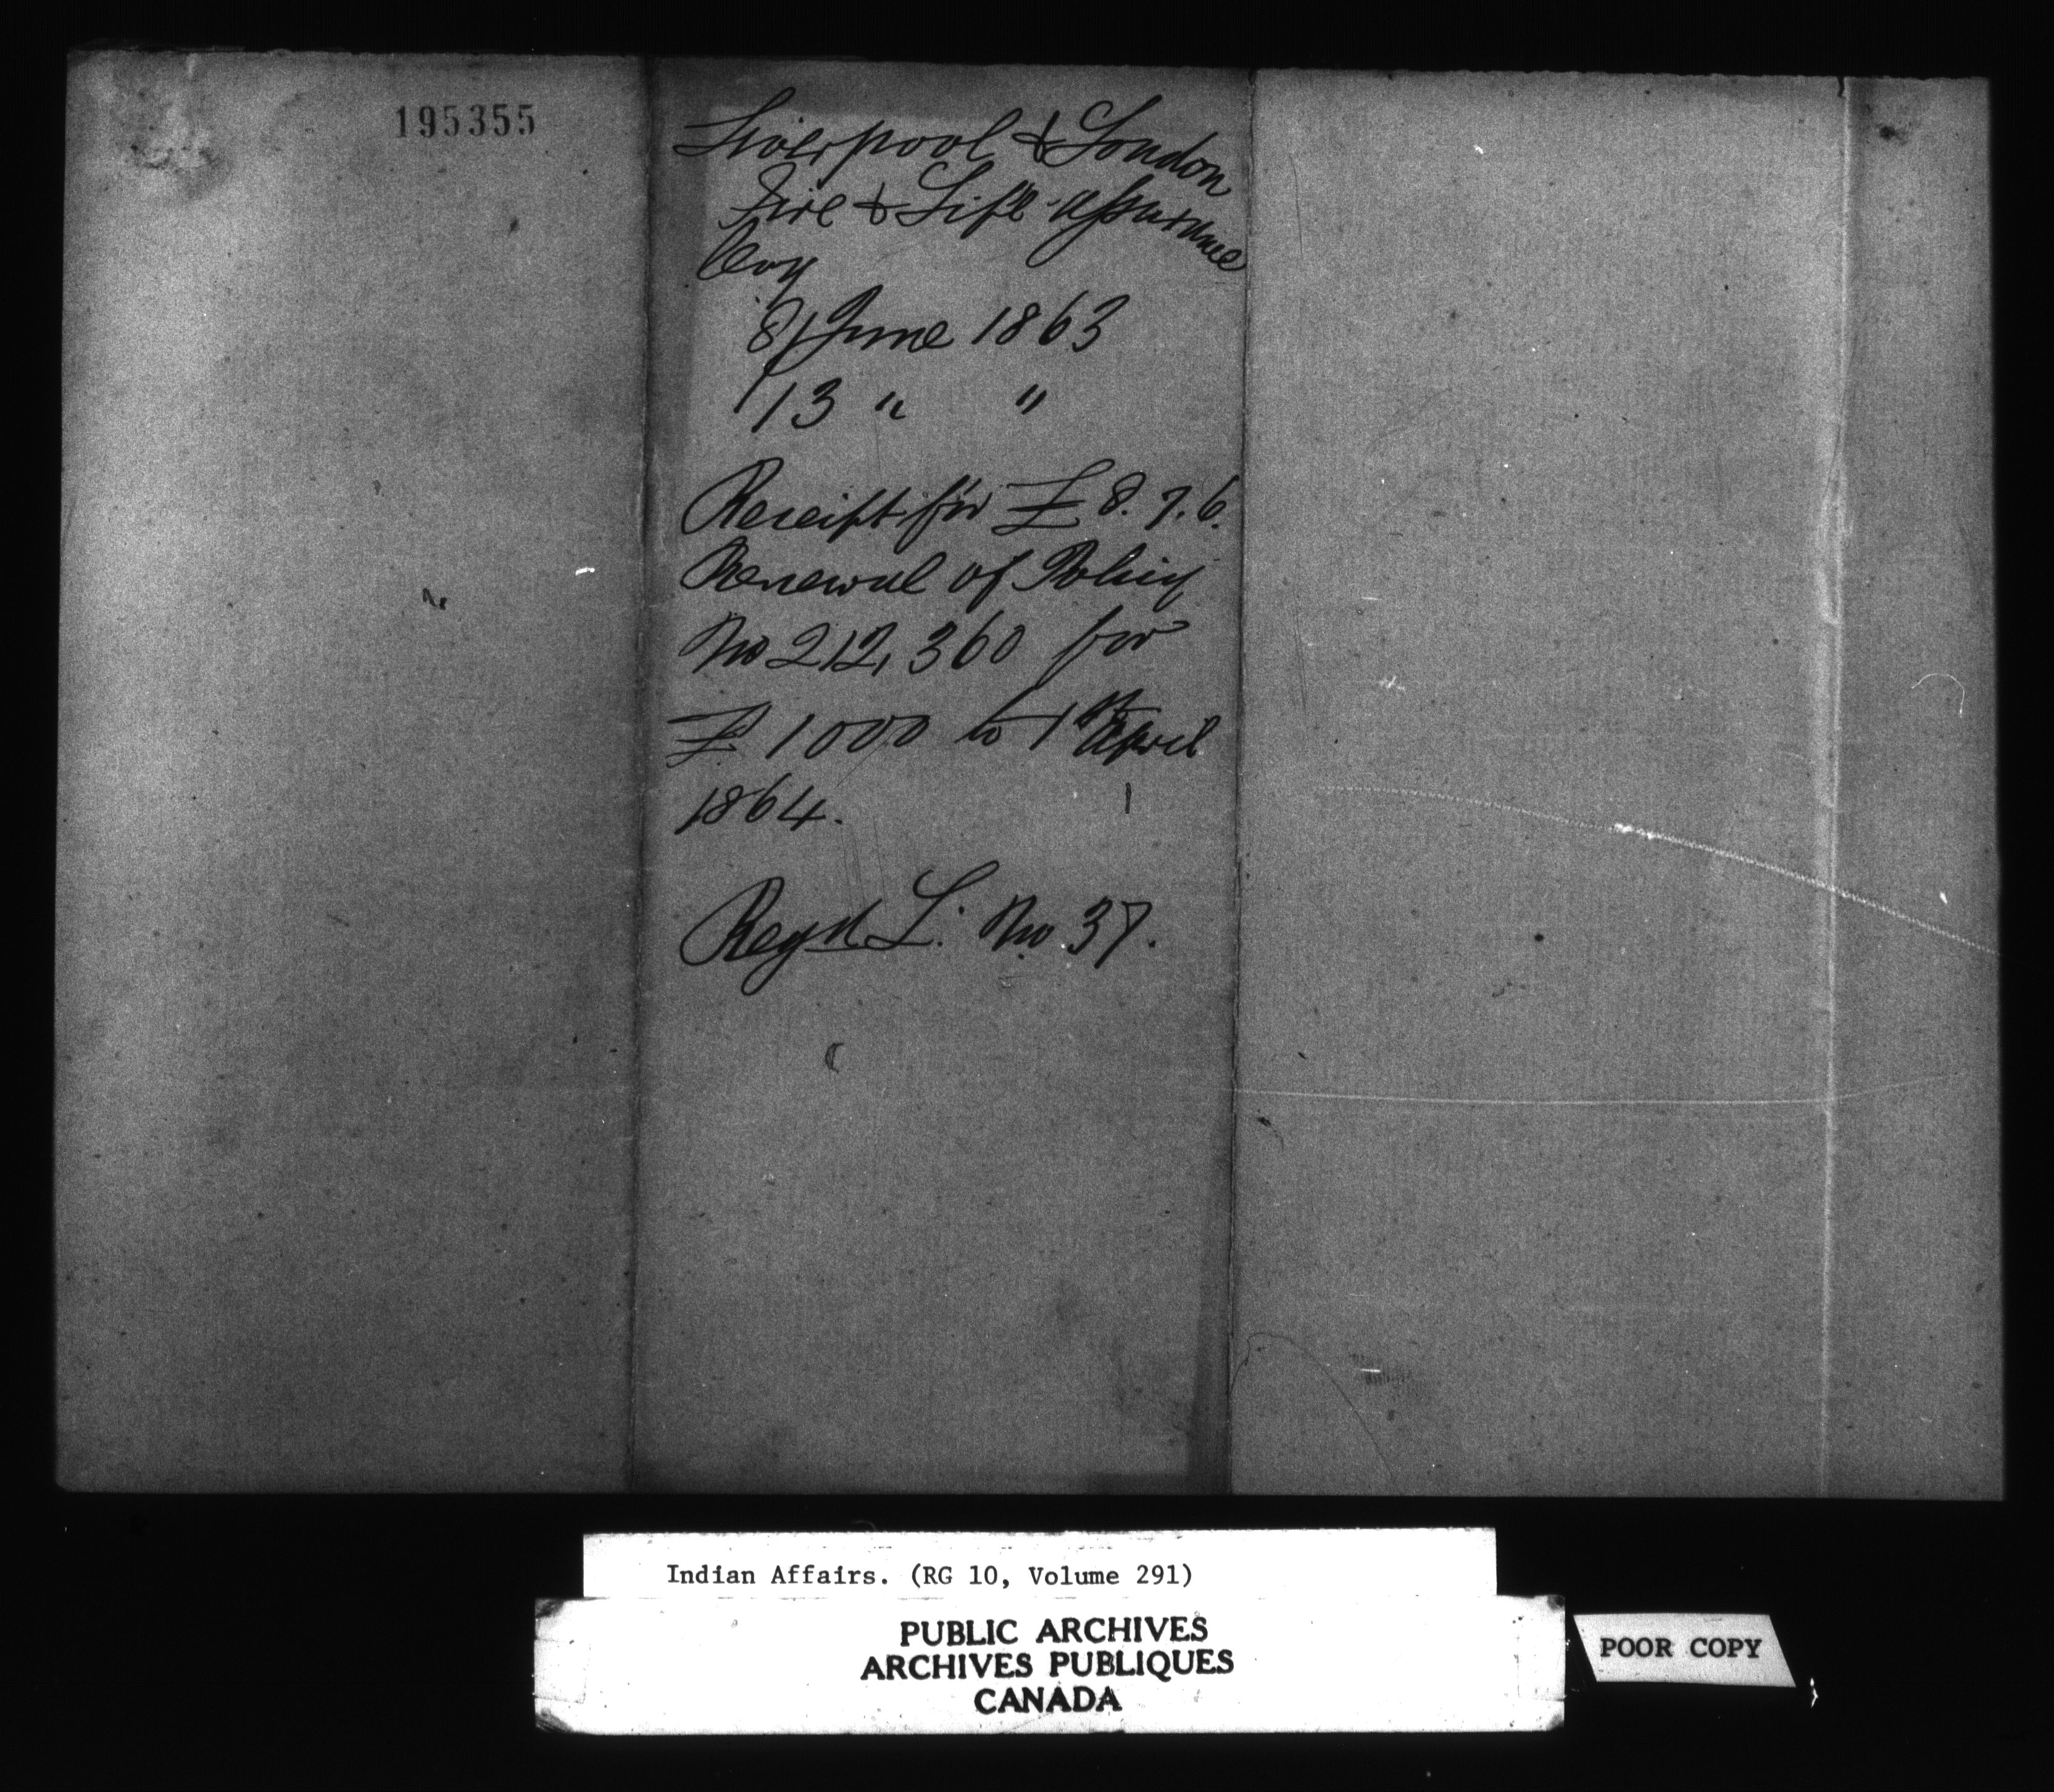 195355
Liverpool & London
Fire & Life Assurance
Coy
8/ June 1863
13 " "
Receipt for £8.7.6.
Renewal of Policy
No 212,360 for
£1000 to 1st April
1864.
Regd L. No. 37.
Indian Affairs. (RG 10, Volume 291)
PUBLIC ARCHIVES
ARCHIVES PUBLIQUES
CANADA
POOR COPY